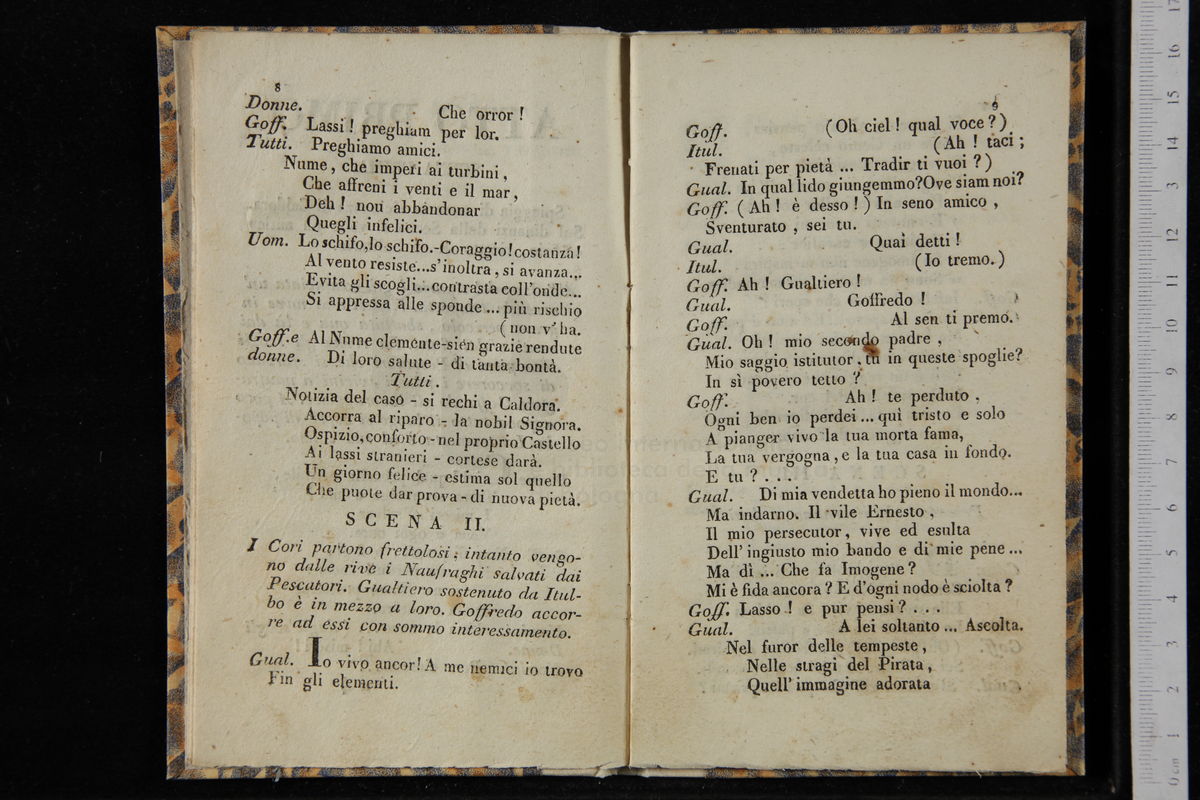 8
Donne. Che orror !
Goff. Lassi ! preghiam per lor.
Tutti. Preghiamo amici.
Nume, che imperi ai turbini ,
Che affreni i venti e il mar ,
Deh ! non abbandonar
Quegli infelici.
Uom. Lo schifo, lo schifo.-Coraggio! costanza!
Al vento resiste...s'inoltra, si avanza...
Evita gli scogli...contrasta coll'onde...
Si appressa alle sponde ... più rischio
( non v'ha.
Goff.e Al Nume clemente-sien grazie rendute
donne. Di loro salute - di tanta bontà.
Tutti.
Notizia del caso - si rechi a Caldora.
Accorra al riparo - la nobil Signora.
Ospizio, conforto - nel proprio Castello
Ai lassi stranieri - cortese darà.
Un giorno felice - estima sol quello
Che puote dar prova - di nuova pietà.
SCENA II.
I Cori partono frettolosi; intanto vengo-
no dalle rive i Naufraghi salvati dai
Pescatori. Gualtiero sostenuto da Itul-
bo è in mezzo a loro. Goffredo accor-
re ad essi con sommo interessamento.
Gual. Io vivo ancor! A me nemici io trovo
Fin gli elementi.
9
Goff. (Oh ciel ! qual voce ?)
Itul. (Ah ! taci ;
Frenati per pietà ... Tradir ti vuoi ?)
Gual. In qual lido giungemmo?Ove siam noi?
Goff. ( Ah ! è desso ! ) In seno amico ,
Sventurato , sei tu.
Gual. Quai detti !
Itul. (Io tremo.)
Goff. Ah ! Gualtiero !
Gual. Goffredo !
Goff. Al sen ti premo.
Gual. Oh ! mio secondo padre ,
Mio saggio istitutor, tu in queste spoglie?
In sì povero tetto ?
Goff. Ah ! te perduto ,
Ogni ben io perdei ... qui tristo e solo
A pianger vivo la tua morta fama,
La tua vergogna, e la tua casa in fondo.
E tu ? . . .
Gual. Di mia vendetta ho pieno il mondo...
Ma indarno. Il vile Ernesto ,
Il mio persecutor, vive ed esulta
Dell' ingiusto mio bando e di mie pene ...
Ma dì ... Che fa Imogene ?
Mi è fida ancora ? E d'ogni nodo è sciolta ?
Goff. Lasso ! e pur pensi ? . . .
Gual. A lei soltanto ... Ascolta.
Nel furor delle tempeste ,
Nelle stragi del Pirata ,
Quell' immagine adorata